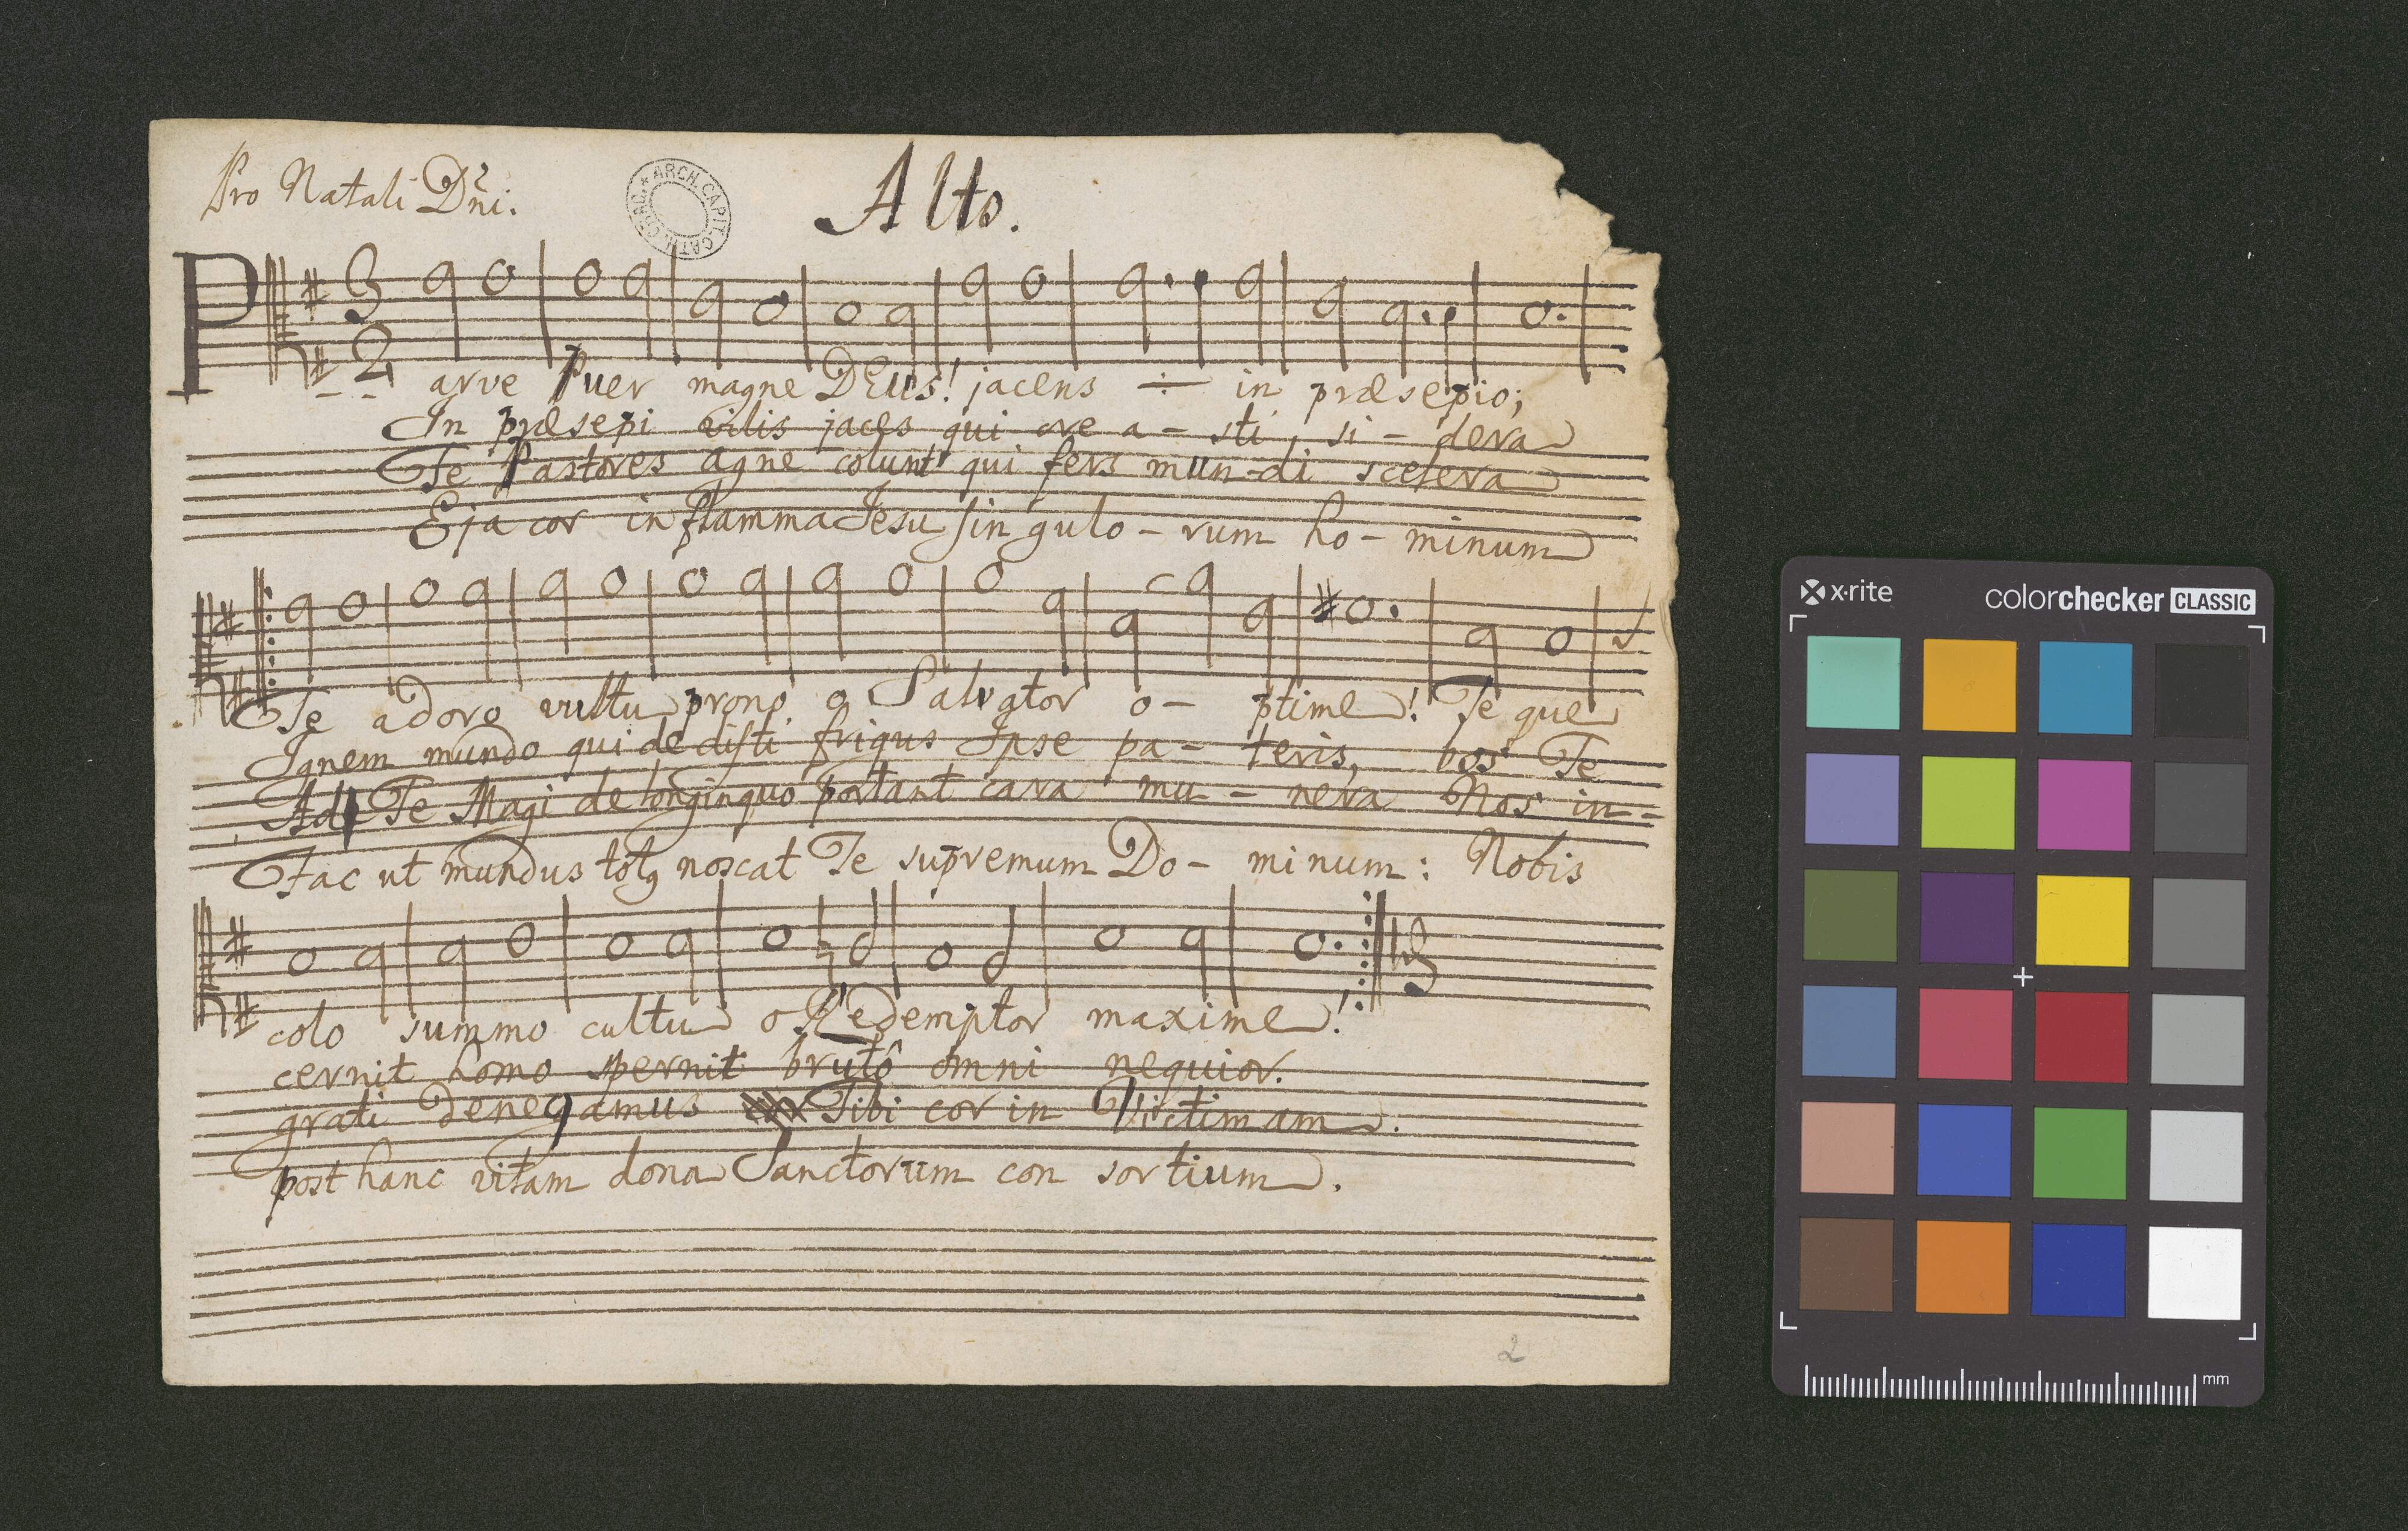 Pro Natali Dñi.
ARCH. CAPIT. CATH. CRAC.
Alto.
3
2
Parve Puer magne DEus! jacens ÷ in præsepio;
In præsepi vilis jaces qui cre a - sti, si - dera
Te Pastores agne colunt qui fers mun-di scelera
Eja cor in flamma Jesu sin gulo - rum ho - minum
Te adoro vultu prono o Salvator o - ptime! Te que
Ignem mundo qui de disti frigus Ipse pa - teris, bos Te
Ad Te Magi de longinquo portant cara mu - nera Nos in -
Fac ut mundus totꝯ noscat Te supremum Do - minum: Nobis
colo summo cultu o Redemptor maxime!
cernit homo spernit brutô omni nequior.
grati denegamus Tibi cor in Victimam.
post hanc vitam dona Sanctorum con sortium.
2
x·rite
colorchecker CLASSIC
mm